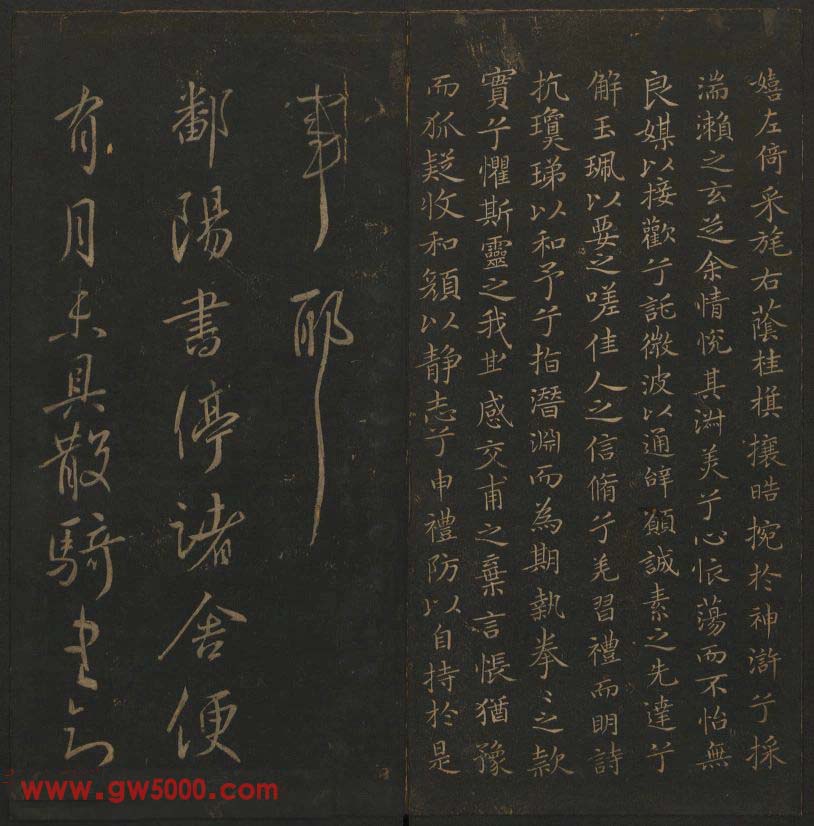 嬉左倚采旄右蔭桂旗攘晧捥於神滸兮採
湍瀨之玄芝余情悅其淑美兮心悵蕩而不怡無
良媒以接歡兮託微波以通辭願誠素之先達兮
解玉珮以要之嗟佳人之信脩兮羌習禮而明詩
抗瓊珶以和予兮指潛淵而為期執拳〻之款
實兮懼斯靈之我欺感交甫之棄言悵猶豫
而狐疑收和顏以静志兮申禮防以自持於是
事耶
鄱陽書停諸舍便
有月未具散騎書
www.gw5000.com